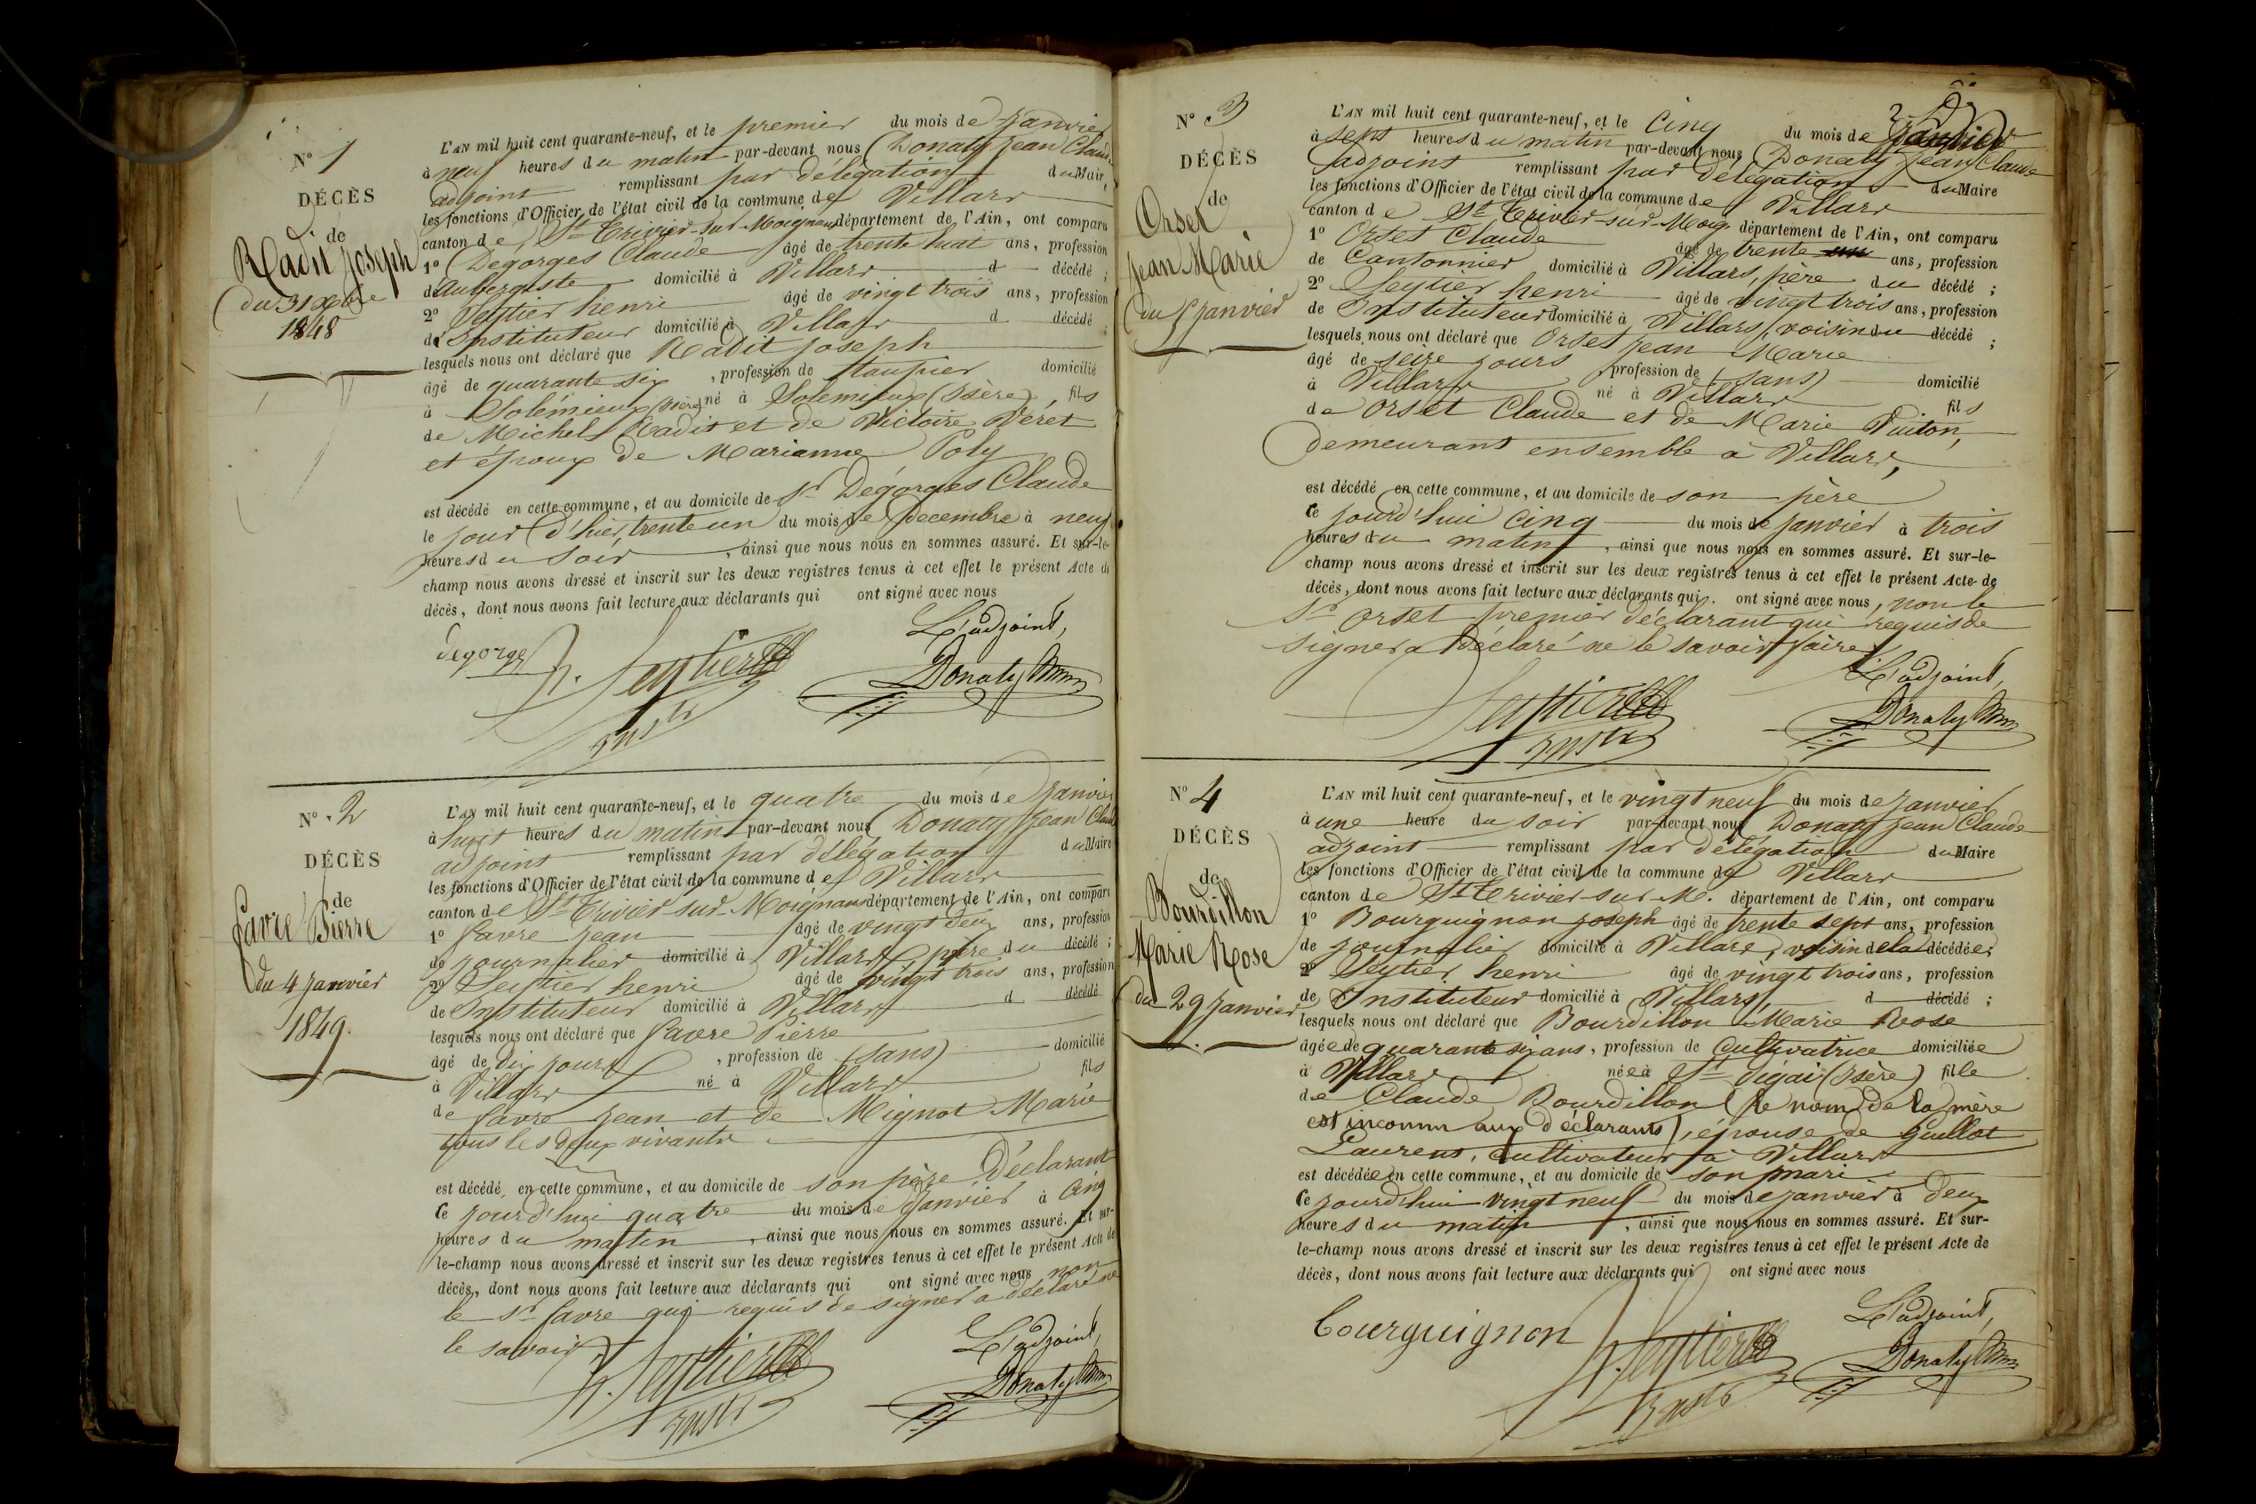 N° 1
DÉCÈS
de
Radit Joseph
du 31 Xbre
1848
L'AN mil huit cent quarante-neuf, et le premier du mois de Janvier
à neuf heures du matin par-devant nous Donaty Jean Claude
adjoint remplissant par délégation du Maire
les fonctions d'Officier de l'état civil de la commune de Villars
canton de St Trivier-sur-Moignans département de l'Ain, ont comparu
1° Degorges Claude âgé de trente huit ans, profession
d'Aubergiste domicilié à Villars d décédé ;
2° Seytier henri âgé de vingt trois ans, profession
d'Instituteur domicilié à Villars d décédé ;
lesquels nous ont déclaré que Radit Joseph
âgé de quarante six , profession de taupier domicilié
à Solémieux (Isère) né à Solémieux (Isère) fils
de Michel Radit et de Victoire Véret
et époux de Marianne Poly
est décédé en cette commune, et au domicile de Sr Dégorges Claude
le jour d'hier, trente un du mois de Decembre à neuf
heures du soir , ainsi que nous nous en sommes assuré. Et sur-le-
champ nous avons dressé et inscrit sur les deux registres tenus à cet effet le présent Acte de
décès, dont nous avons fait lecture aux déclarants qui ont signé avec nous
L'adjoint,
degorge h. Seytier Donaty
Instr
N° 2
DÉCÈS
de
favre Pierre
du 4 Janvier
1849.
L'AN mil huit cent quarante-neuf, et le quatre du mois de Janvier
à huit heures du matin par-devant nous Donaty Jean Claude
adjoint remplissant par délégation du Maire
les fonctions d'Officier de l'état civil de la commune de Villars
canton de St Trivier-sur-Moignans département de l'Ain, ont comparu
1° favre Jean âgé de vingt deux ans, profession
de journalier domicilié à Villars, père du décédé ;
2° Seytier henri âgé de vingt trois ans, profession
de Instituteur domicilié à Villars d décédé
lesquels nous ont déclaré que favre Pierre
âgé de dix jours , profession de (sans) domicilié
à Villars né à Villars fils
de favre Jean et de Mignot Marie
tous les deux vivants
est décédé en cette commune, et au domicile de son père Déclarant
Ce jourd'hui quatre du mois de Janvier à cinq
heures du matin , ainsi que nous nous en sommes assuré. Et sur-
le-champ nous avons dressé et inscrit sur les deux registres tenus à cet effet le présent Acte de
décès, dont nous avons fait lecture aux déclarants qui ont signé avec nous non
le Sr favre qui requis de signer a déclaré ne
le savoir
L'adjoint,
h. Seytier Donaty
Instr
N° 3
DÉCÈS
de
Orset
Jean Marie
du 5 Janvier
L'AN mil huit cent quarante-neuf, et le cinq du mois de Janvier
à sept heures du matin par-devant nous Donaty Jean Claude
adjoint remplissant par délégation du Maire
les fonctions d'Officier de l'état civil de la commune de Villars
canton de St Trivier-sur-Moig. département de l'Ain, ont comparu
1° Orset Claude âgé de trente un ans, profession
de Cantonnier domicilié à Villars, père du décédé ;
2° Seytier henri âgé de vingt trois ans, profession
de Instituteur domicilié à Villars, voisin du décédé ;
lesquels nous ont déclaré que Orset Jean Marie
âgé de seize jours profession de (sans) domicilié
à Villars né à Villars fils
de Orset Claude et de Marie Vuiton,
demeurant ensemble à Villars,
est décédé en cette commune, et au domicile de son père
Ce jourd'hui cinq du mois de Janvier à trois
heures du matin , ainsi que nous nous en sommes assuré. Et sur-le-
champ nous avons dressé et inscrit sur les deux registres tenus à cet effet le présent Acte de
décès, dont nous avons fait lecture aux déclarants qui ont signé avec nous, non le
Sr Orset premier déclarant qui requis de
signer a déclaré ne le savoir faire.
L'adjoint,
Seytier Donaty
Instr
N° 4
DÉCÈS
de
Bourdillon
Marie Rose
du 29 Janvier
L'AN mil huit cent quarante-neuf, et le vingt neuf du mois de Janvier
à une heure du soir par-devant nous Donaty Jean Claude
adjoint remplissant par délégation du Maire
les fonctions d'Officier de l'état civil de la commune de Villars
canton de St Trivier-sur-M. département de l'Ain, ont comparu
1° Bourguignon Joseph âgé de trente sept ans, profession
de journalier domicilié à Villars, voisin de la décédée ;
2° Seytier henri âgé de vingt trois ans, profession
de Instituteur domicilié à Villars, d décédé ;
lesquels nous ont déclaré que Bourdillon Marie Rose
âgée de quarante six ans, profession de Cultivatrice domiciliée
à Villars née à St (Isère) fille
de Claude Bourdillon (le nom de la mère
est inconnu aux déclarants), épouse de Guillot
Laurent, cultivateur à Villars
est décédée en cette commune, et au domicile de son mari
Ce jourd'hui vingt neuf du mois de Janvier à deux
heures du matin , ainsi que nous nous en sommes assuré. Et sur-
le-champ nous avons dressé et inscrit sur les deux registres tenus à cet effet le présent Acte de
décès, dont nous avons fait lecture aux déclarants qui ont signé avec nous
L'adjoint,
bourguignon h. Seytier Donaty
Instr